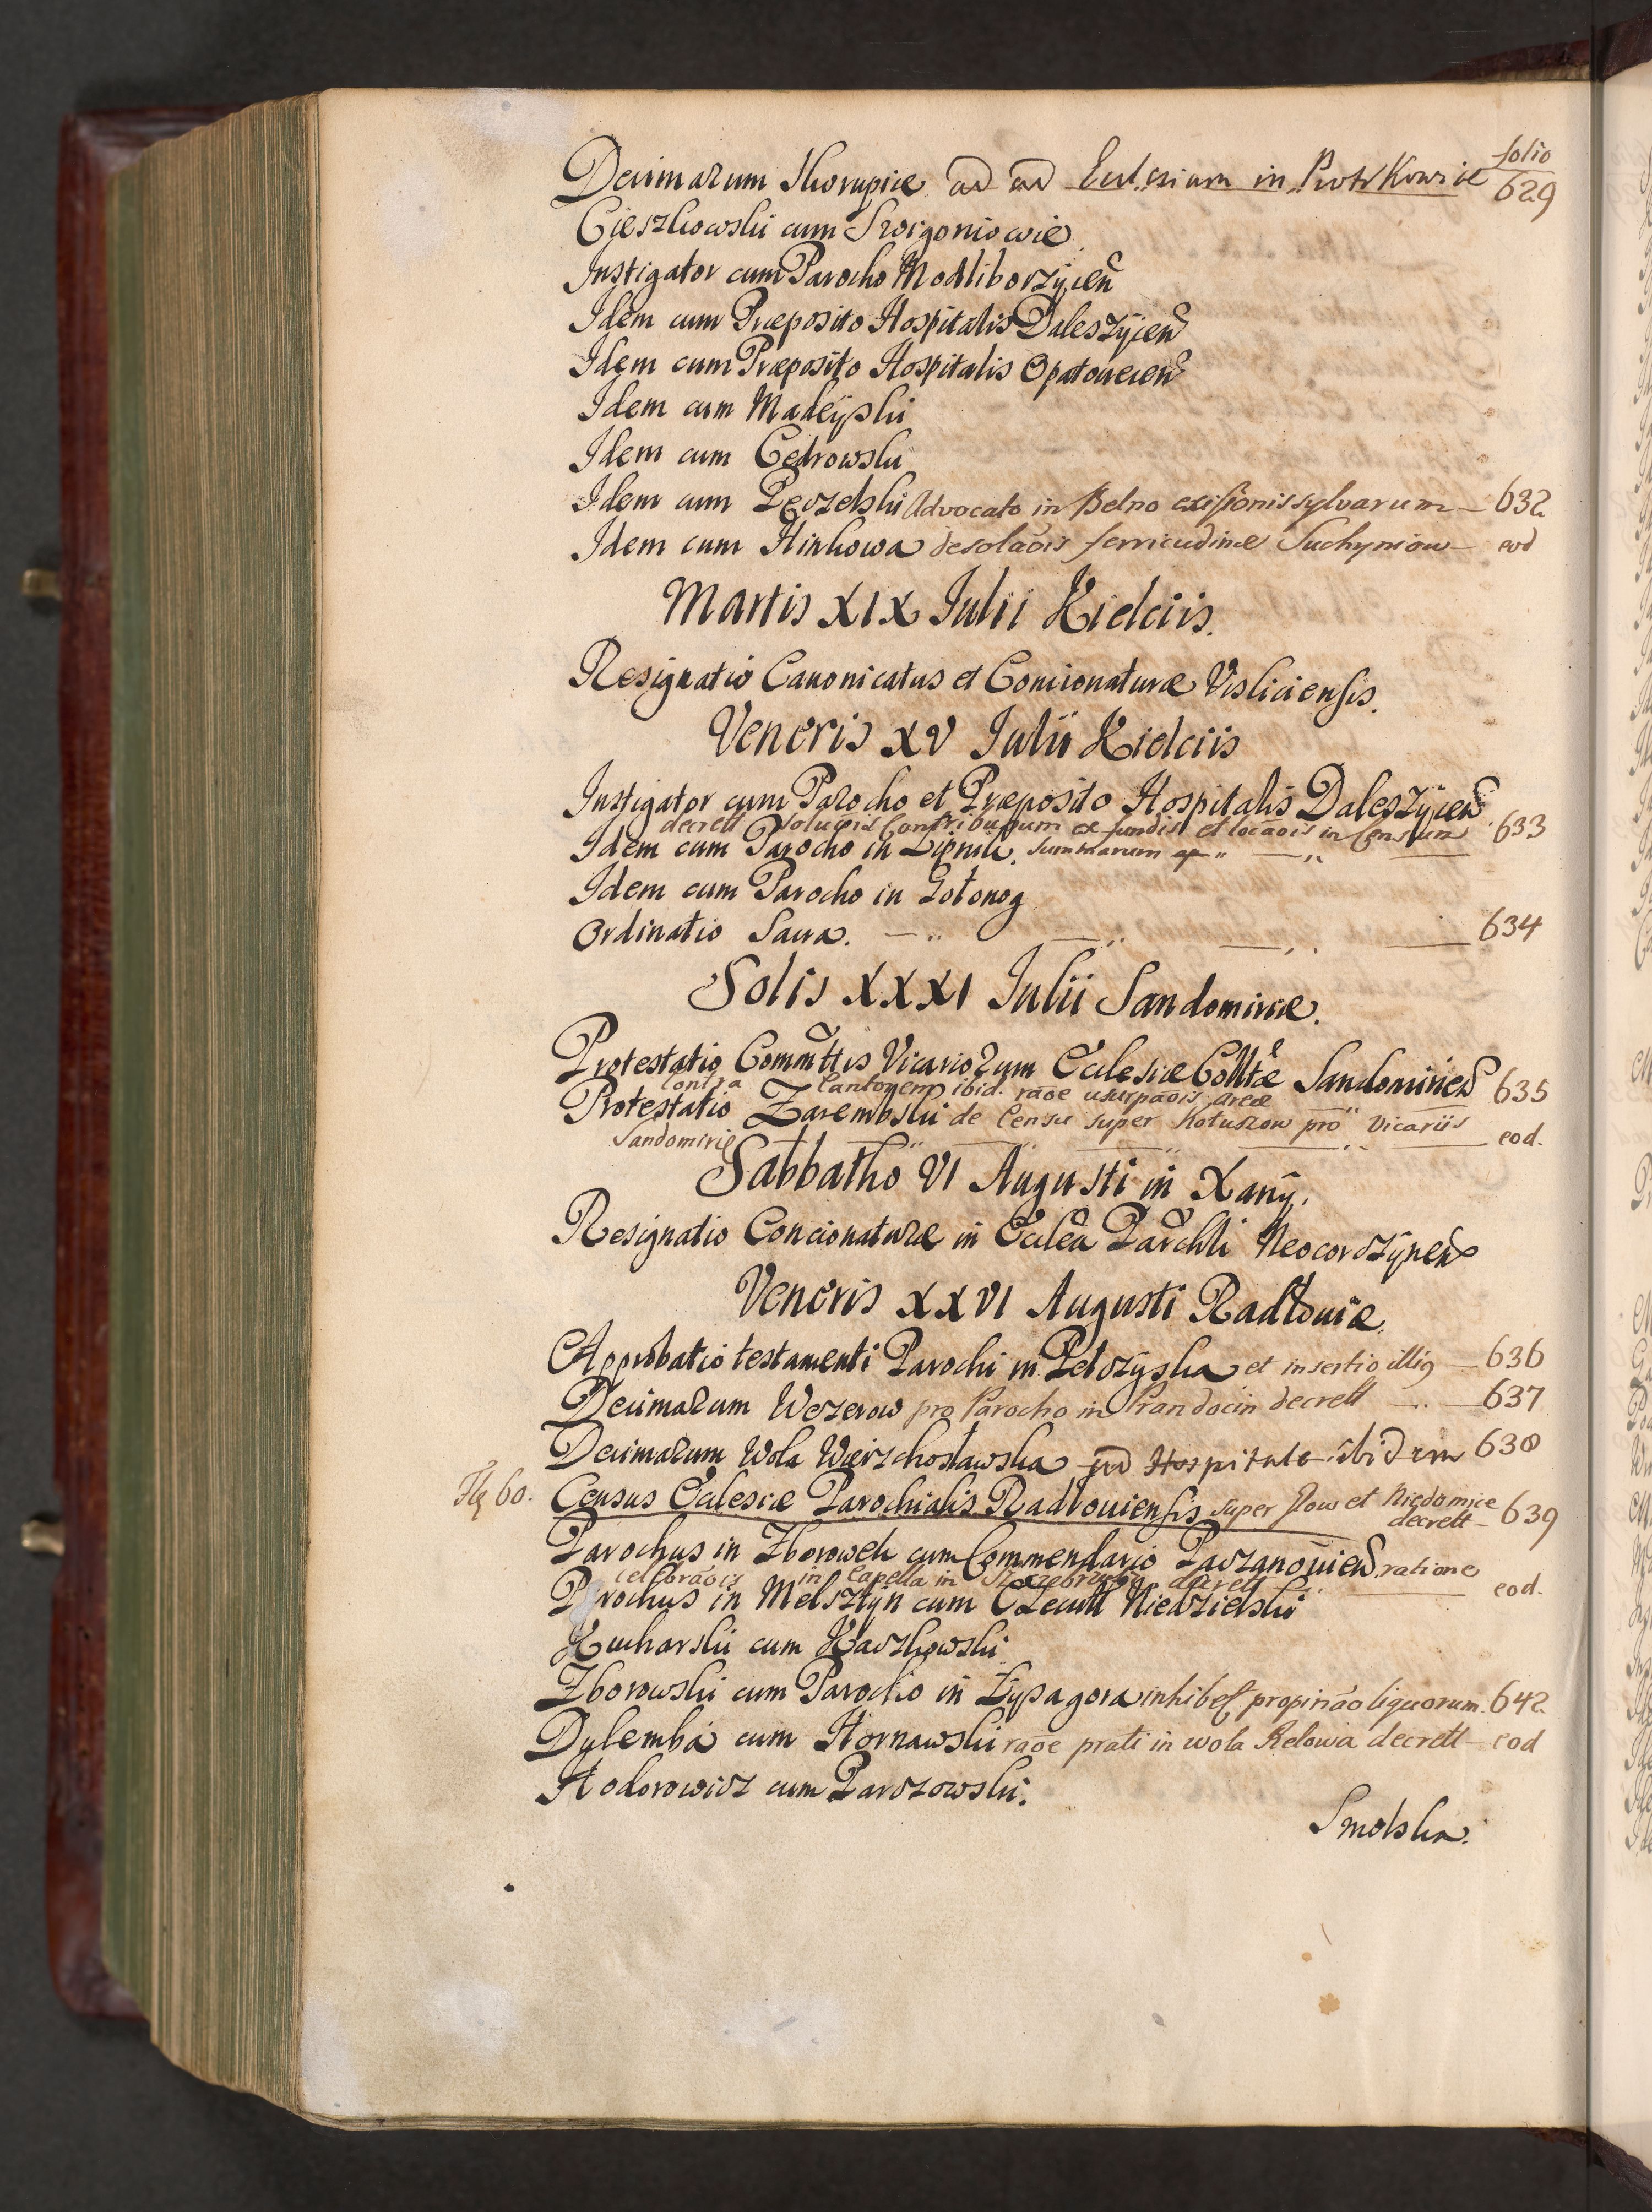 folio
Decimarum Skorupice ad ad Ecclesiam in Piotrkowice 629
Cieszkowski cum Swigoniowie
Instigator cum Parocho Modliborzÿcen̄
Idem cum Præposito Hospitalis Daleszÿcen̄
Idem cum Præposito Hospitalis Opatovecen̄
Idem cum Madeÿski
Idem cum Cedrowski
Idem cum Peczelski Advocato in Belno exisionis sylvarum — 632
Idem cum Hinkowa desolaōis ferricudinæ Suchyniow — eod
Martis XIX Iulii Kielciis.
Resignatio Canonicatus et Concionaturæ Visliciensis.
Veneris XV Iulii Kielciis
Instigator cum Parocho et Præposito Hospitalis Daleszÿcen̄
decrett solucōis Contribuōum ex fundis et locaōis in Censum 633
Idem cum Parocho in Lipnik. Summarum
Idem cum Parocho in Gołonog
Ordinatio Sacra. — 634
Solis XXXI Iulii Sandomiriæ.
Protestatio Commttis Vicariorum Ecclesiæ Colltæ Sandomirien̄
contra Cantorem ibid. raōe usurpaōis areæ 635
Protestatio Zarembski de Censu super Kotuszow pro Vicariis
Sandomiriæ — eod.
Sabbatho VI Augusti in Xanÿ.
Resignatio Concionaturæ in Ecclēa Parchli Neocorczÿnen̄
Veneris XXVI Augusti Radłoviæ.
Approbatio testamenti Parochi in Pelczyska et insertio illig — 636
Decimarum Wezerow pro Parocho in Prandocin decrett — 637
Decimarum Wola Wierzchosławska pro Hospitale ibidem 638
Flg 60. Census Ecclesiæ Parochialis Radłoviensis super Łow et Niedomice
decrett — 639
Parochus in Zborowek cum Commendario Paczanovien̄. ratione
celebraōis in Capella in decrett — eod.
Parochus in Melsztÿn cum Executt Niedzielski
Kucharski cum Kaczkowski
Zborowski cum Parocho in Łÿsagora inhibef propinaō liquorum. 642
Dylemba cum Hornawski raōe prati in wola Relowa decrett — eod
Hodorowicz cum Parczowski.
Smolska.